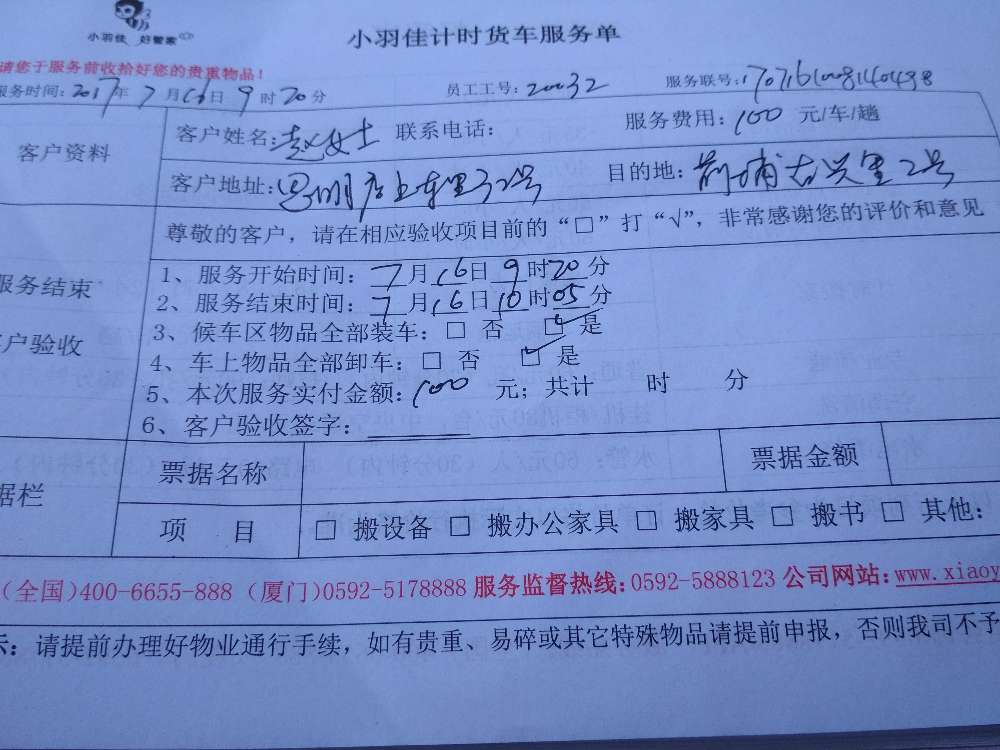 小羽佳 好管家
小羽佳计时货车服务单
请您于服务前收拾好您的贵重物品！
服务时间：2017年7月16日9时20分 员工工号：20032 服务联号：
客户资料
客户姓名：赵女士 联系电话： 服务费用：100 元/车/趟
客户地址：思明 目的地：前埔古兴里2号
尊敬的客户，请在相应验收项目前的“□”打“√”，非常感谢您的评价和意见
服务结束
客户验收
1、服务开始时间：7月16日9时20分
2、服务结束时间：7月16日10时05分
3、候车区物品全部装车：□ 否 ☑ 是
4、车上物品全部卸车：□ 否 ☑ 是
5、本次服务实付金额：100 元；共计 时 分
6、客户验收签字：
据栏
票据名称 票据金额
项 目 □ 搬设备 □ 搬办公家具 □ 搬家具 □ 搬书 □ 其他：
(全国)400-6655-888 (厦门)0592-5178888 服务监督热线：0592-5888123 公司网站：www.xiaoy
示：请提前办理好物业通行手续，如有贵重、易碎或其它特殊物品请提前申报，否则我司不予